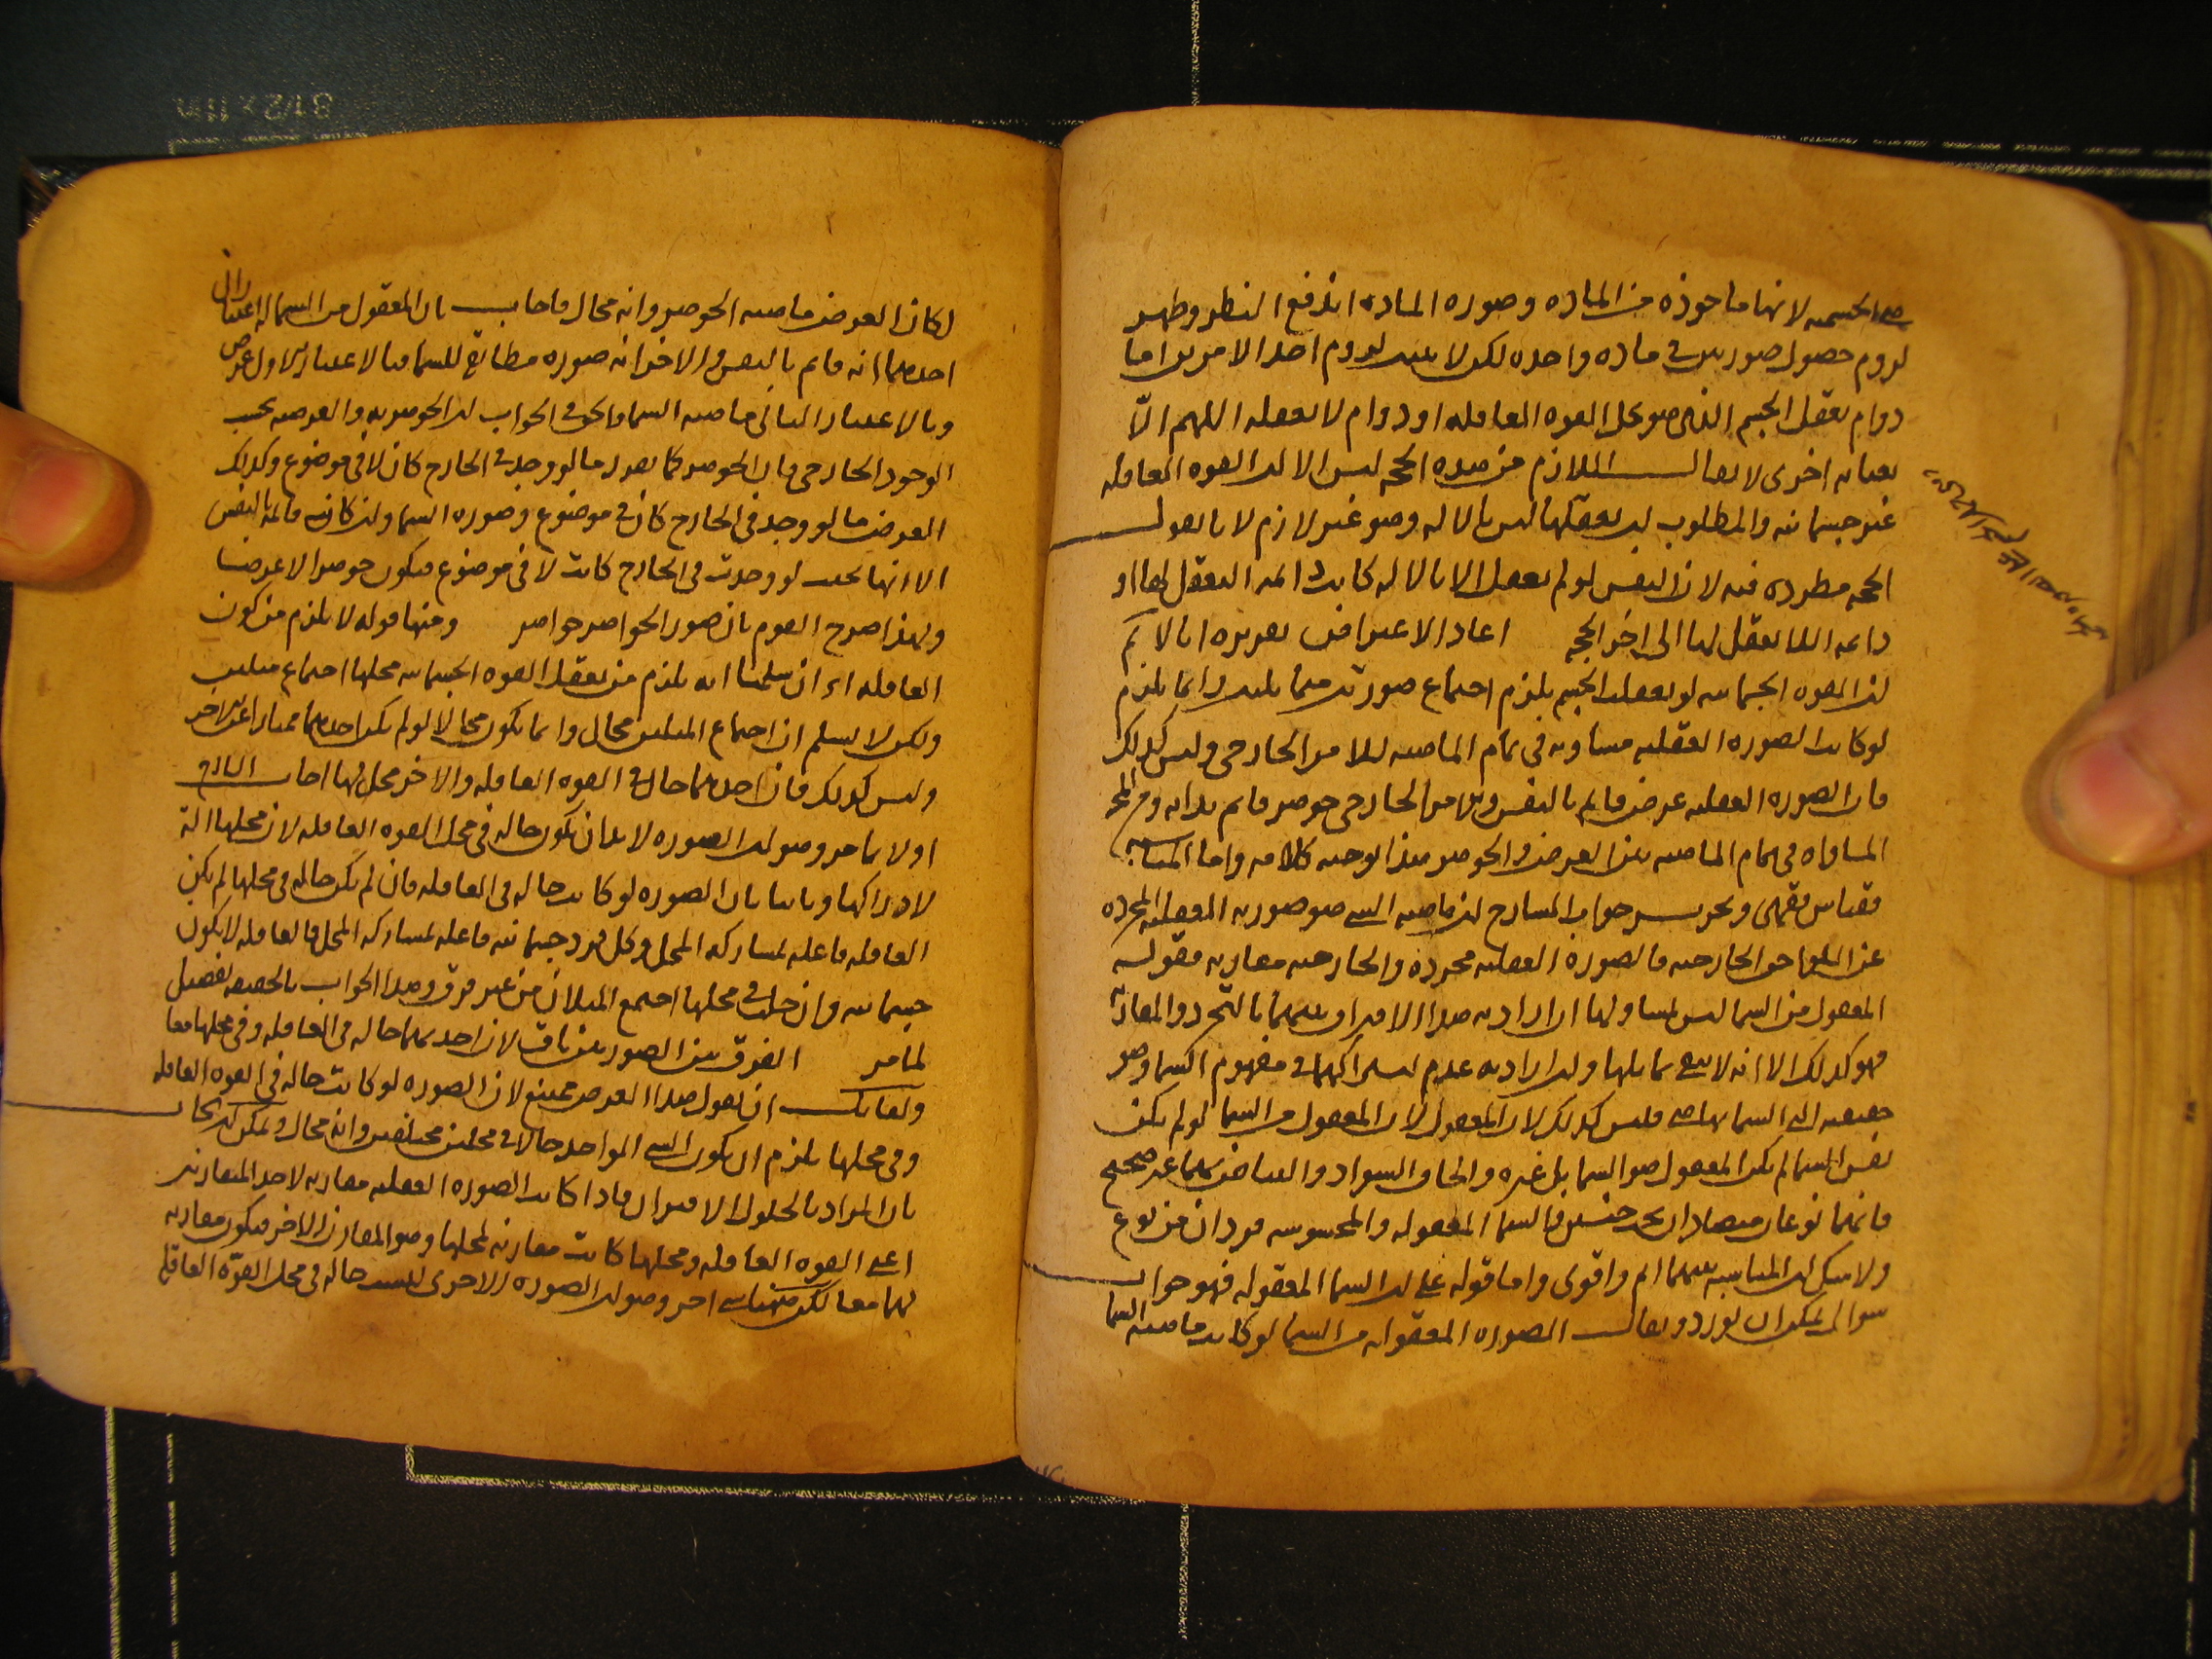 هي الجسمية لانها ماخوذة من المادة وصورة المادة اندفع النظر وظهر
لزوم حصول صورتين في مادة واحدة لكن لا يفيد لزوم احد الامرين اما
دوام تعقل الجسم الذي هو محل القوة العاقلة او دوام لا تعقله اللهم الا
بعناية اخرى لا يقال اللازم من هذه الحجة ليس الا ان القوة العاقلة
غير جسمانية والمطلوب ان تعقلها ليس بالالة وهو غير لازم لانا نقول
الحجة مطردة فيه لان النفس لو لم تعقل الا بالالة كانت دائمة التعقل لها او
دائمة اللاتعقل لها الى اخر الحجة اعاد الاعتراض تقريره انا لا نم
ان القوة الجسمانية لو تعقلت الجسم يلزم اجتماع صورتين متماثلتين وانما يلزم
لو كانت الصورة العقلية مساوية في تمام الماهية للامر الخارجي وليس كذلك
فان الصورة العقلية عرض قايم بالنفس والامر الخارجي جوهر قايم بذاته ومن المح
المساواة في تمام الماهية بين العرض والجوهر هذا توجيه كلامه واما المناسبة
فقياس فقهي وتحرير جواب الشارح ان ماهية الشي هو صورته العقلية المجردة
عن اللواحق الخارجية فالصورة العقلية مجردة والخارجية مقارنة فقوله
المعقول من السما ليس بمساو لها ان اراد به هذا الافتراق بينهما بالتجرد والمقارنة
فهو كذلك الا انه لا ينفي تماثلها وان اراد به عدم اشتراكهما في مفهوم السما وهو
حقيقة التي السما بها هي فليس كذلك لان المعقول لان المعقول من السما لو لم يكن
نفس السما لم يكن المعقول هو السما بل غيره والحاق السواد والبياض بهما غير صحيح
فانهما نوعان متضادان تحت جنس فالسما المعقولة والمحسوسة فردان من نوع
ولا شك ان المناسبة بينهما اتم واقوى واما قوله على ان السما المعقولة فهو جواب
سوال يمكن ان يورد ويقال الصورة المعقولة من السما لو كانت ماهية السما
لكان العرض ماهية الجوهر وانه محال فاجاب بان المعقول من السما له اعتباران
احدهما انه قايم بالنفس والاخر انه صورة مطابقة للسما فبالاعتبار الاول عرض
وبالاعتبار الثاني ماهية السما والحق في الجواب ان الجوهرية والعرضية بحسب
الوجود الخارجي فان الجوهر كما تصور ما لو وجد في الخارج كان لا في موضوع وكذلك
العرض ما لو وجد في الخارج كان في موضوع وصورة السما وان كانت قائمة بالنفس
الا انها بحيث لو وجدت في الخارج كانت لا في موضوع فيكون جوهرا لا عرضا
ولهذا صرح القوم بان صور الجواهر جواهر ومنها قوله لا يلزم من كون
العاقلة اي ان سلمنا انه يلزم من تعقل القوة الجسمانية محلها اجتماع مثلين
ولكن لا نسلم ان اجتماع المثلين محال وانما يكون محالا لو لم يكن احدهما ممتازا عن الاخر
وليس كذلك فان احدهما حال في القوة العاقلة والاخر محل لها اجاب الشارح
اولا بما مر وهو ان الصورة لا بد ان تكون حالة في محل القوة العاقلة لان محلها الة
لادراكها وثانيا بان الصورة لو كانت حالة في العاقلة فان لم تكن حالة في محلها لم يكن
العاقلة فاعلة بمشاركة المحل وكل قوة جسمانية فاعلة بمشاركة المحل فالعاقلة لا تكون
جسمانية وان حلت في محلها اجتمع المثلان من غير فرق وهذا الجواب بالحقيقة تفصيل
لما مر الفرق بين الصورتين باق لان احديهما حالة في العاقلة وفي محلها معا
ولقائل ان يقول هذا الفرض ممتنع لان الصورة لو كانت حالة في القوة العاقلة
وفي محلها يلزم ان يكون الشي الواحد حالا في محلين مختلفين وانه محال ويمكن ان يجاب
بان المراد بالحلول الاقتران فاذا كانت الصورة العقلية مقارنة لاحد المتقارنين
اعني القوة العاقلة ومحلها كانت مقارنة لمحلها وهو المقارن الاخر فيكون مقارنة
لهما معا لكن ههنا شي اخر وهو ان الصورة الاخرى ليست حالة في محل القوة العاقلة